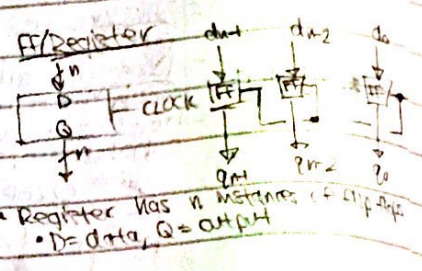 FF/Register
dn-1 dn-2 d0
n
D CLOCK FF FF FF
Q
n
qn-1 qn-2 q0
• Register has n instances of flip-flops
• D= data, Q = output